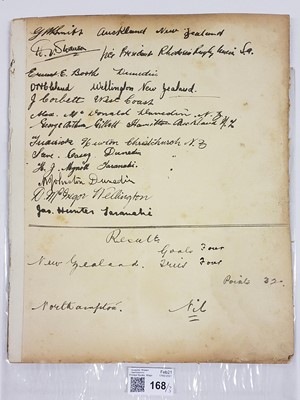 G W Smith Auckland New Zealand
Vice President Rhodesia Rugby Union S.A.
Ernest E. Booth Dunedin
Wellington New Zealand.
J Corbett West Coast
Alex. Mc Donald Dunedin N.Z
George Arthur Gillett Hamilton Auckland N.Z
Newton Christchurch N.Z
Dave. Casey Dunedin
H. J. Mynott Taranaki.
Johnston Dunedin
D. McGregor Wellington
Jas. Hunter Taranaki
Result
Goals Four
New Zealand. Tries Four
Points 32.
Northampton. Nil
Feb21
168/